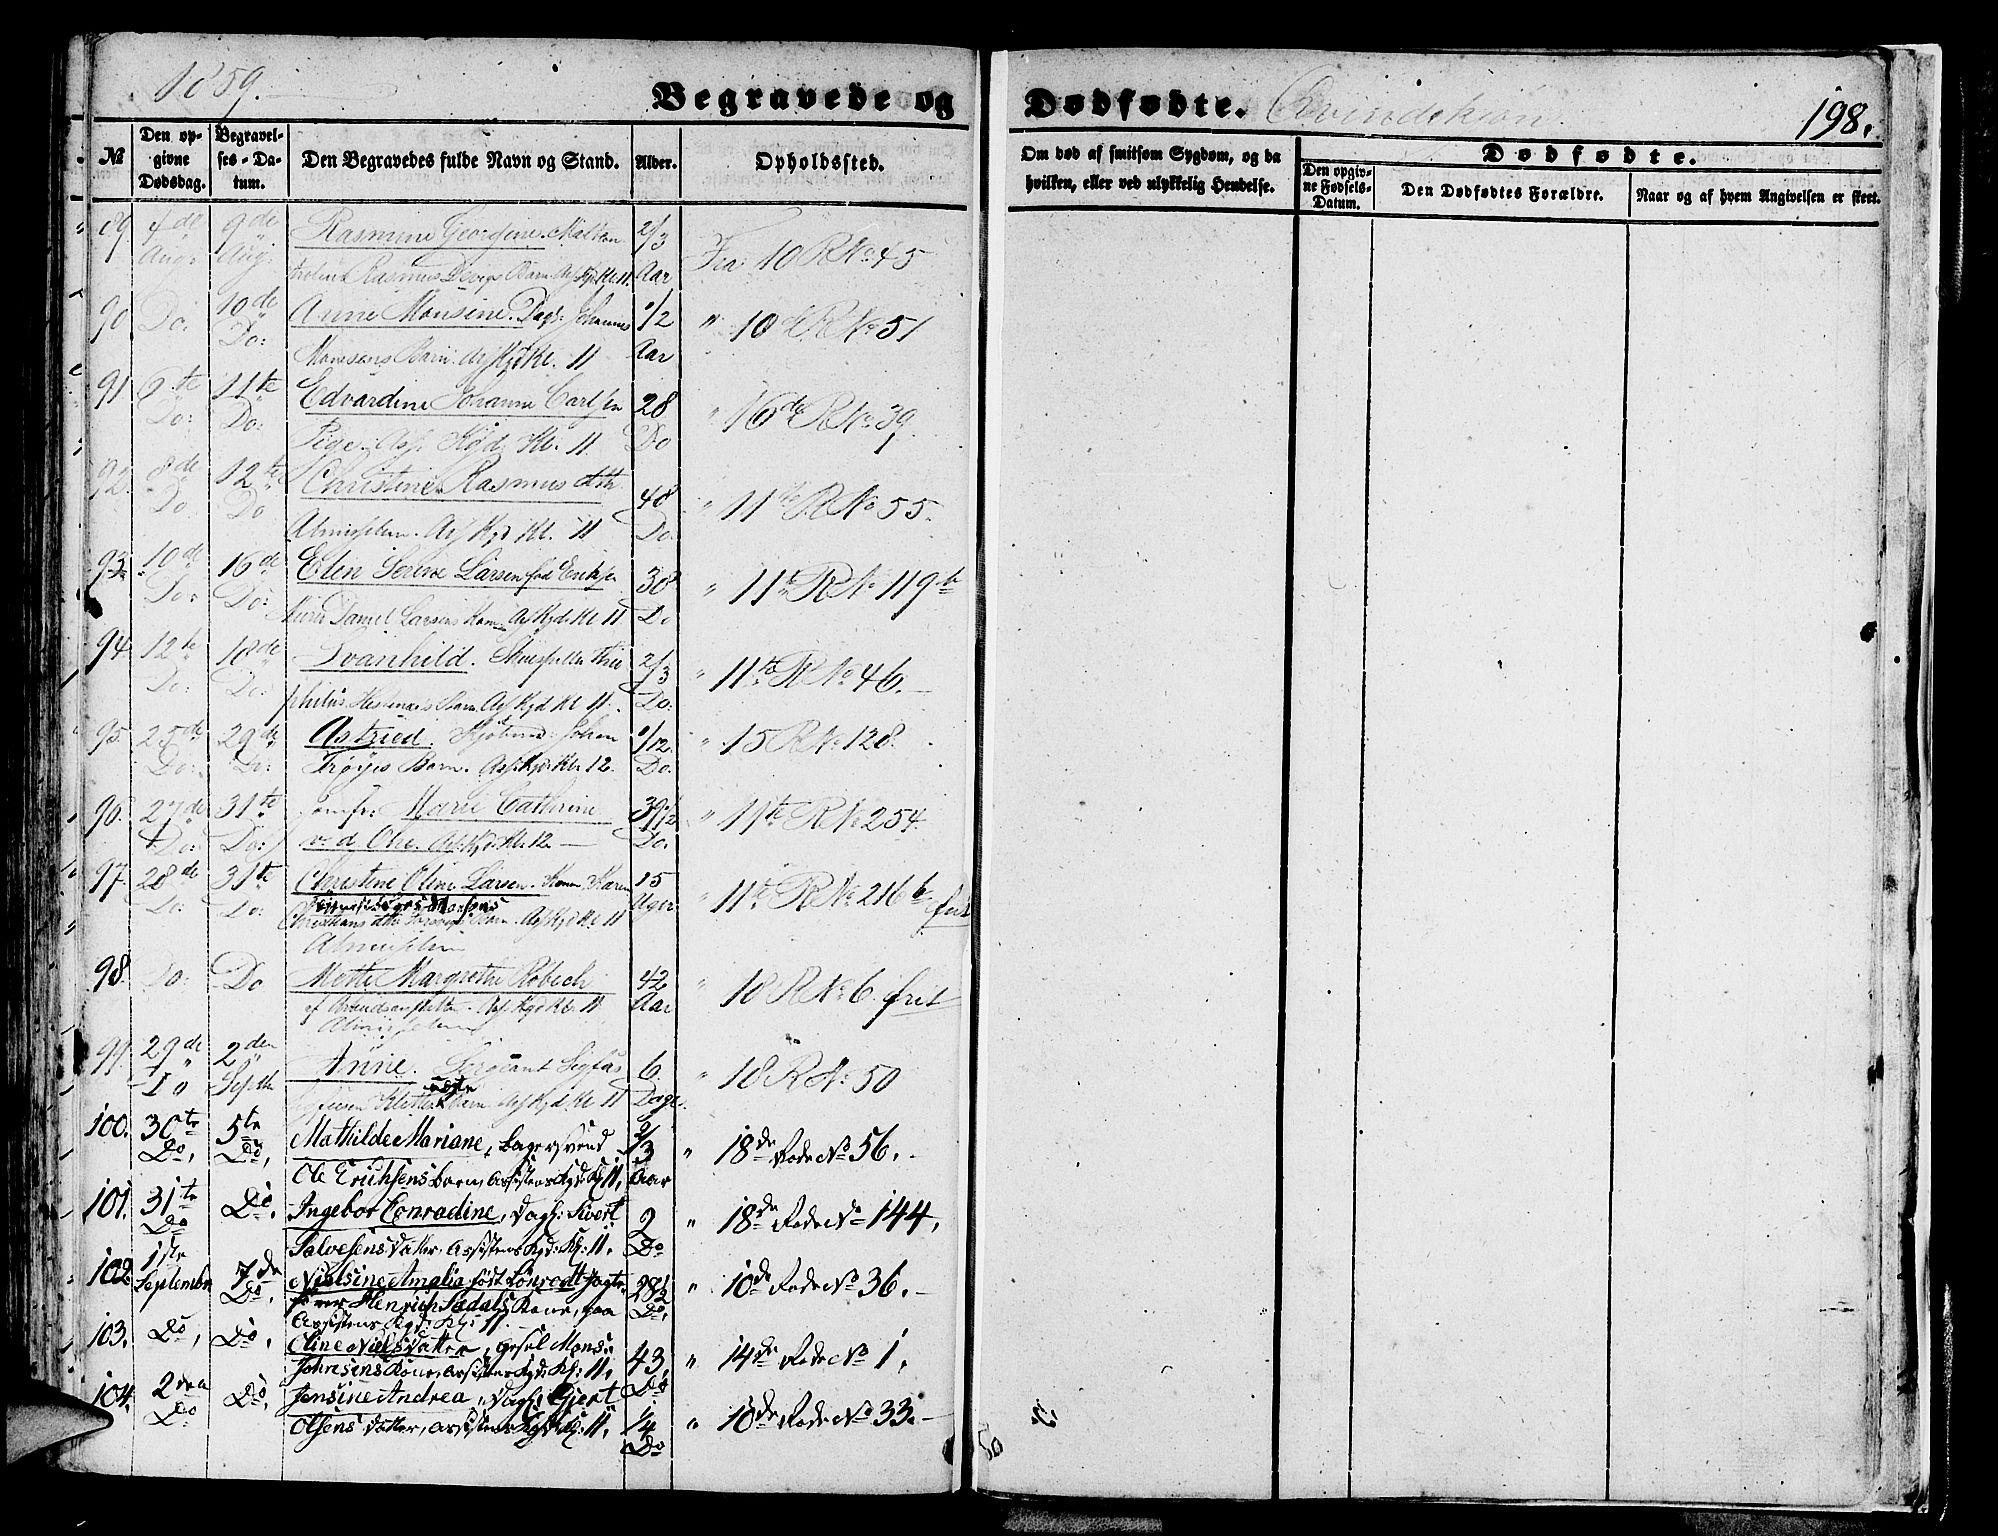 1859.
Begravede og Dødfødte. Qvindekiøn.
198.
№
Den opgivne Dødsdag.
Begravelses-Datum.
Den Begravedes fulde Navn og Stand.
Alder.
Opholdssted.
Om død af smitsom Sygdom, og da hvilken, eller ved ulykkelig Hendelse.
Dødfødte.
Den opgivne Fødsels-Datum.
Den Dødfødtes Forældre.
Naar og af hvem Angivelsen er skeet.
89. 4de 9de Rasmine Georgine. 2/3 Fra 10 R No 45
Aug: Aug: Rasmus Barn. Ass Kgd Kl. 11. Aar
90. Do. 10de Anne Monsine. Dagl: Johannes 1/2 " 10de R No 51
Do: Monsens Barn. Ass Kgd Kl. 11 Aar
91. 6te 11te Edvardine Johanne Carlsen 28 " 16de R No 39
Do: Do: Pige. Ass. Kgd. Kl. 11. Do
92. 8de 12te Christine Rasmusdtr. 48 " 11te R No 55.
Do Do Almisselem. Ass Kgd Kl. 11 Do.
93. 10de 16de Elen Serine Larsen fød Eriksen 38 " 11te R No 119b
Do: Do: Daniel Larsens Kone Ass Kgd. Kl 11 Do
94. 12te 18de Svanhild. 2/3 " 11te R No 46.
Do: Do: Barn. Ass Kgd Kl 11. Do:
95. 25de 29de Astried. Johan 1/12 " 15 R No 128.
Do: Do: Trøyes Barn. Ass. Kgd. Kl. 12. Do.
96. 27de 31te Jomfr: Marie Cathrine 39 1/2 " 11te R No 254.
Do: Do: v. d. Ohe. Ass Kgd. Kl. 12. Do.
97. 28de 31te Christine Oline Larsen. Karen 15 " 11te R No 216b frit
Do: Do: Barn. Ass Kgd Kl 11 Uger
Almisselem
98. Do: Do Mette Margrethe Robech 42 " 18 R No 6. frit
Ass. Kgd Kl. 11 Aar
Almisselem
99. 29de 2den Anne. Sergeant Sigfus 6 " 18 R No 50
Do Septb Barn Ass Kgd Kl 11 Dage.
100. 30te 5te Mathilde Mariane, Bagersvend 2/3 " 18de Rode No 56.
Do, Do, Ole Erichsens Barn, Assistens Kgd: Kl: 11, Aar
101. 31te Do, Ingebor Conradine, Dagl: Sivert 2 " 18de Rode No 144,
Do Salvesens Datter, Assistens Kgd: Kl: 11, Do
102. 1ste 7de Nielsine Amalia født Lønrodt Jagte- 28 1/2 " 10de Rode No 36.
September Do, fører Henrich Sædals Kone, paa Do,
Assistens Kgd: Kl: 11.
103. Do, Do, Oline Nielsdatter, Gesel Mons: 43, " 14de Rode No 1,
Johnsens Kone, Assistens Kgd: Kl: 11, Do
104. 2den Do, Jensine Andrea, Dagl: Gjert 1/4 " 10de Rode No 33.
Do Olsens Datter, Assistens Kgd: Kl: 11, Do